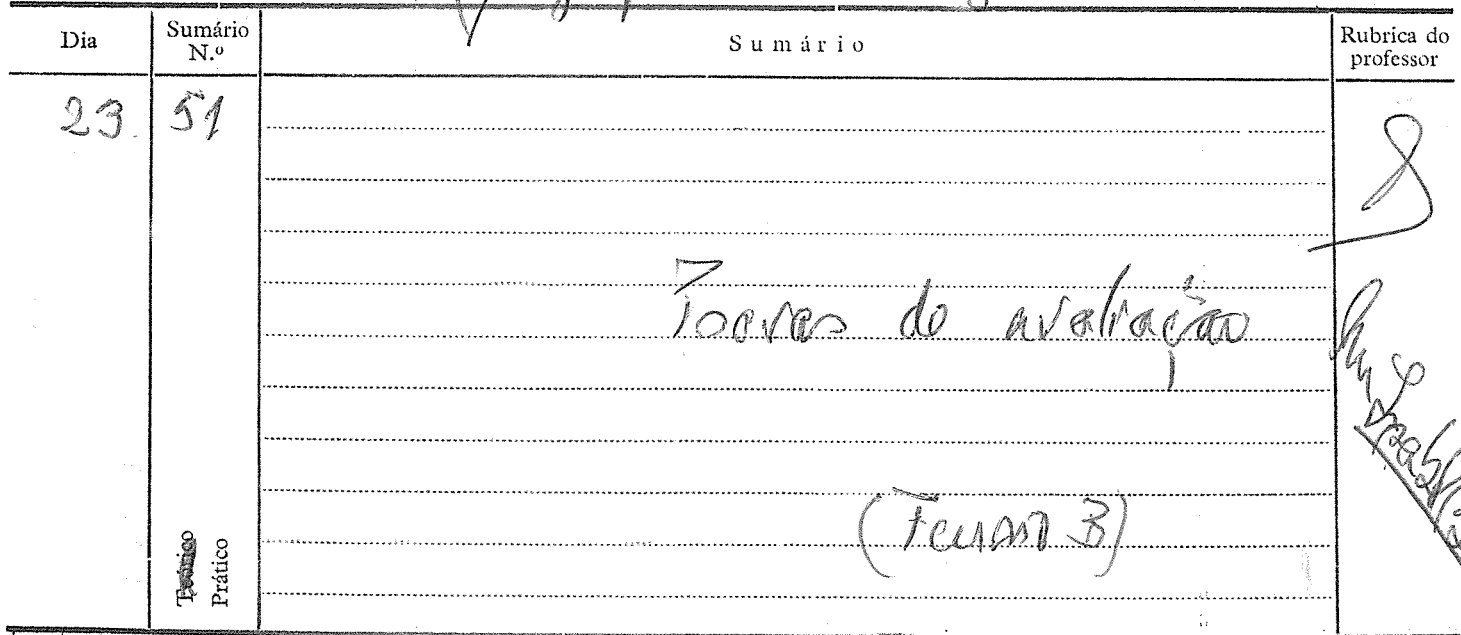 Dia
Sumário N.º
Sumário
Rubrica do professor
23
51
Provas de avaliação
(Turma B)
Teórico
Prático